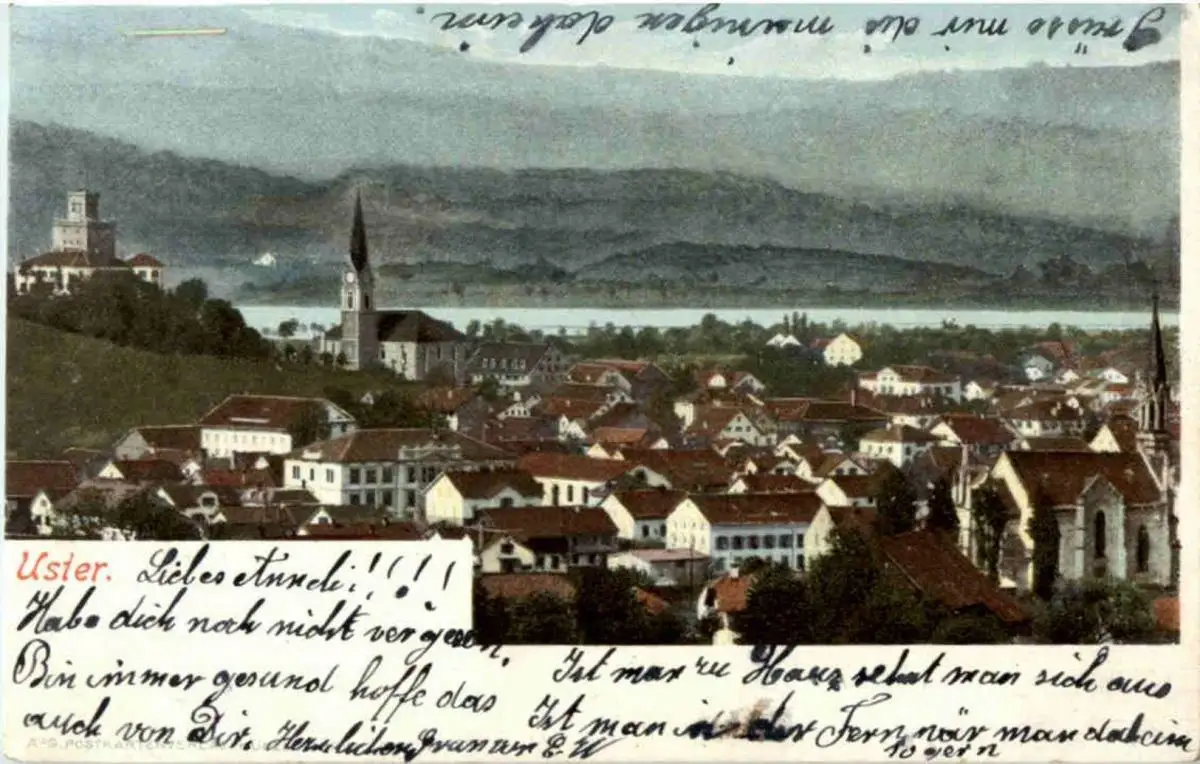 Grüsse mir die meinigen daheim
Uster.
Liebes Anndi!!!!
Habe dich noch nicht vergesen,
Bin immer gesund hoffe das
auch von Dir. Herzlichen E W
Ist man zu Hauz sehnt man sich aus
Ist man in der Fern wär man daheim
so gern